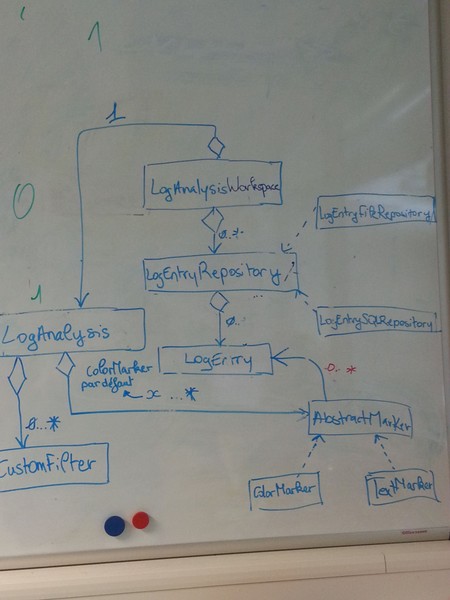 1
1
LogAnalysisWorkspace
0
0..*
LogEntryFileRepository
LogEntryRepository
1
...
LogEntrySQLRepository
LogAnalysis
0..
LogEntry
ColorMarker
par défaut
x ...*
0..*
0..*
AbstractMarker
CustomFilter
ColorMarker
TextMarker